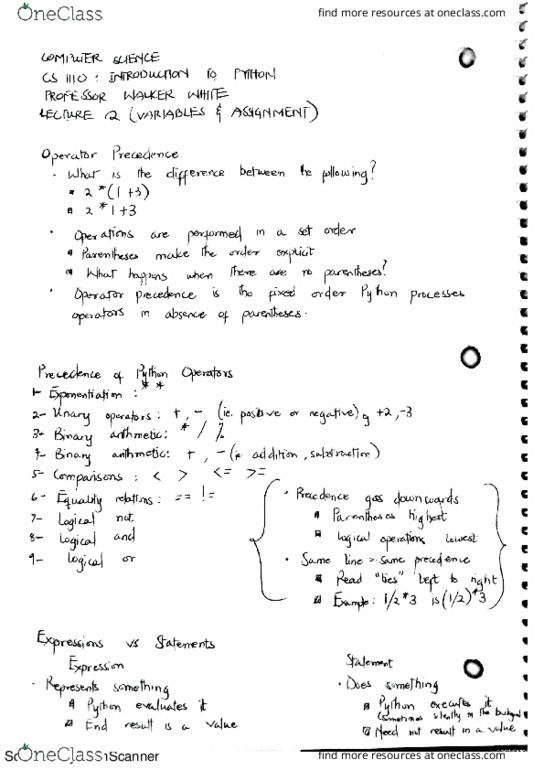 OneClass
find more resources at oneclass.com
COMPUTER SCIENCE
CS 1110 : INTRODUCTION TO PYTHON
PROFESSOR WALKER WHITE
LECTURE 2 (VARIABLES & ASSIGNMENT)
Operator Precedence
· What is the difference between the following?
2 * (1 + 3)
2 * 1 + 3
· Operations are performed in a set order
Parentheses make the order explicit
What happens when there are no parentheses?
· Operator precedence is the fixed order Python processes
operators in absence of parentheses.
Precedence of Python Operators
1- Exponentiation : **
2- Unary operators : +, - (ie. positive or negative) eg +2, -3
3- Binary arithmetic: * / %
4- Binary arithmetic: +, - (ie addition, subtraction)
5- Comparisons : < > <= >=
6- Equality relations : == !=
7- Logical not
8- Logical and
9- Logical or
· Precedence goes downwards
Parentheses highest
Logical operations lowest
· Same line = same precedence
Read "ties" left to right
Example: 1/2*3 is (1/2)*3
Expressions vs Statements
Expression
· Represents something
Python evaluates it
End result is a value
Statement
· Does something
Python executes it
(sometimes silently in the
Need not result in a value
OneClass
Scanner
find more resources at oneclass.com